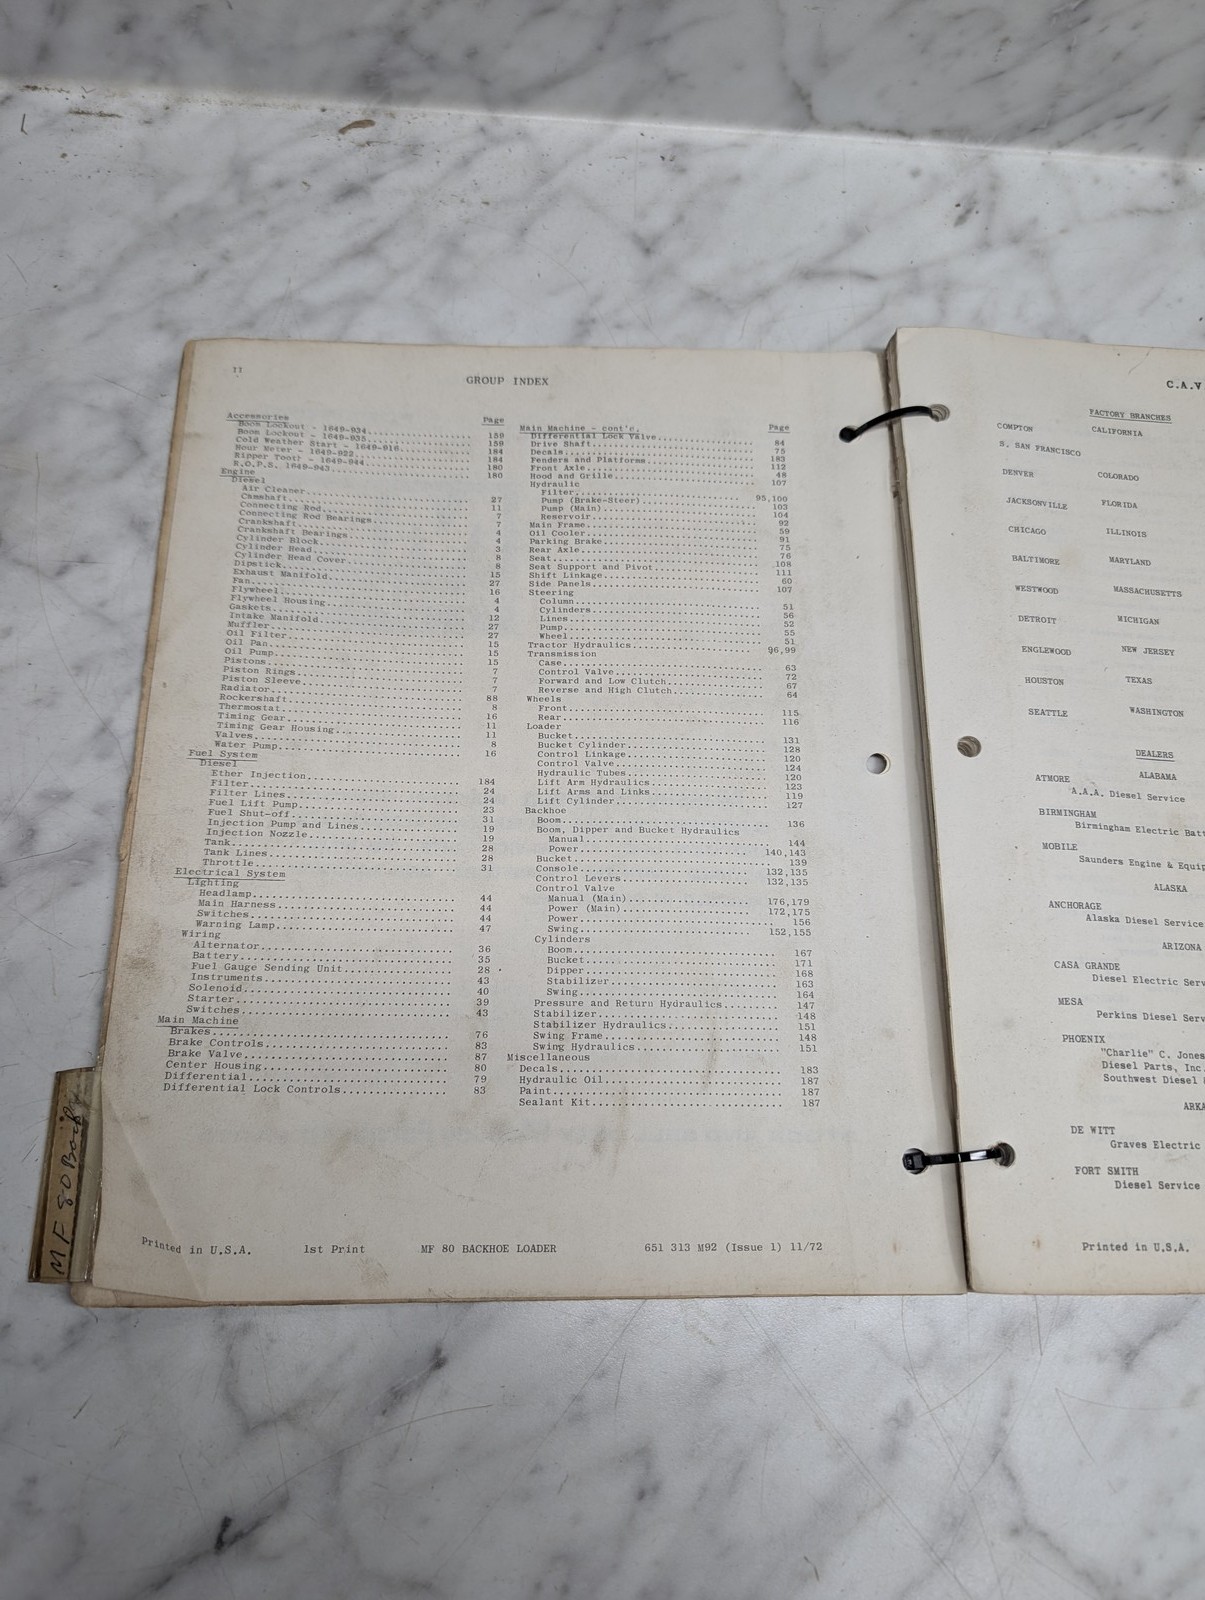 GROUP INDEX
Page
Accessories
Boom Lockout - 1649-934 159
Boom Lockout - 1649-935 159
Cold Weather Start - 1649-916 184
Hour Meter - 1649-922 184
Ripper Tooth - 1649-944 180
R.O.P.S. 1649-943 180
Engine
Diesel
Air Cleaner 27
Camshaft 11
Connecting Rod 7
Connecting Rod Bearings 7
Crankshaft 4
Crankshaft Bearings 4
Cylinder Block 3
Cylinder Head 8
Cylinder Head Cover 8
Dipstick 15
Exhaust Manifold 27
Fan 16
Flywheel 4
Flywheel Housing 4
Gaskets 12
Intake Manifold 27
Muffler 27
Oil Filter 15
Oil Pan 15
Oil Pump 15
Pistons 7
Piston Rings 7
Piston Sleeve 7
Radiator 88
Rockershaft 8
Thermostat 16
Timing Gear 11
Timing Gear Housing 11
Valves 8
Water Pump 16
Fuel System
Diesel
Ether Injection 184
Filter 24
Filter Lines 24
Fuel Lift Pump 23
Fuel Shut-off 31
Injection Pump and Lines 19
Injection Nozzle 19
Tank 28
Tank Lines 28
Throttle 31
Electrical System
Lighting
Headlamp 44
Main Harness 44
Switches 44
Warning Lamp 47
Wiring
Alternator 36
Battery 35
Fuel Gauge Sending Unit 28
Instruments 43
Solenoid 40
Starter 39
Switches 43
Main Machine
Brakes 76
Brake Controls 83
Brake Valve 87
Center Housing 80
Differential 79
Differential Lock Controls 83
Page
Main Machine - cont'e.
Differential Lock Valve 84
Drive Shaft 75
Decals 183
Fenders and Platforms 112
Front Axle 48
Hood and Grille 107
Hydraulic
Filter 95,100
Pump (Brake-Steer) 103
Pump (Main) 104
Reservoir 92
Main Frame 59
Oil Cooler 91
Parking Brake 75
Rear Axle 76
Seat 108
Seat Support and Pivot 111
Shift Linkage 60
Side Panels 107
Steering
Column 51
Cylinders 56
Lines 52
Pump 55
Wheel 51
Tractor Hydraulics 96,99
Transmission
Case 63
Control Valve 72
Forward and Low Clutch 67
Reverse and High Clutch 64
Wheels
Front 115
Rear 116
Loader
Bucket 131
Bucket Cylinder 128
Control Linkage 120
Control Valve 124
Hydraulic Tubes 120
Lift Arm Hydraulics 123
Lift Arms and Links 119
Lift Cylinder 127
Backhoe
Boom 136
Boom, Dipper and Bucket Hydraulics
Manual 144
Power 140,143
Bucket 139
Console 132,135
Control Levers 132,135
Control Valve
Manual (Main) 176,179
Power (Main) 172,175
Power 156
Swing 152,155
Cylinders
Boom 167
Bucket 171
Dipper 168
Stabilizer 163
Swing 164
Pressure and Return Hydraulics 147
Stabilizer 148
Stabilizer Hydraulics 151
Swing Frame 148
Swing Hydraulics 151
Miscellaneous
Decals 183
Hydraulic Oil 187
Paint 187
Sealant Kit 187
Printed in U.S.A. 1st Print MF 80 BACKHOE LOADER 651 313 M92 (Issue 1) 11/72
MF 80 Back
C.A.V
FACTORY BRANCHES
COMPTON CALIFORNIA
S. SAN FRANCISCO
DENVER COLORADO
JACKSONVILLE FLORIDA
CHICAGO ILLINOIS
BALTIMORE MARYLAND
WESTWOOD MASSACHUSETTS
DETROIT MICHIGAN
ENGLEWOOD NEW JERSEY
HOUSTON TEXAS
SEATTLE WASHINGTON
DEALERS
ALABAMA
ATMORE
A.A.A. Diesel Service
BIRMINGHAM
Birmingham Electric Batt
MOBILE
Saunders Engine & Equip
ALASKA
ANCHORAGE
Alaska Diesel Service
ARIZONA
CASA GRANDE
Diesel Electric Serv
MESA
Perkins Diesel Serv
PHOENIX
"Charlie" C. Jones
Diesel Parts, Inc.
Southwest Diesel
ARKA
DE WITT
Graves Electric
FORT SMITH
Diesel Service
Printed in U.S.A.